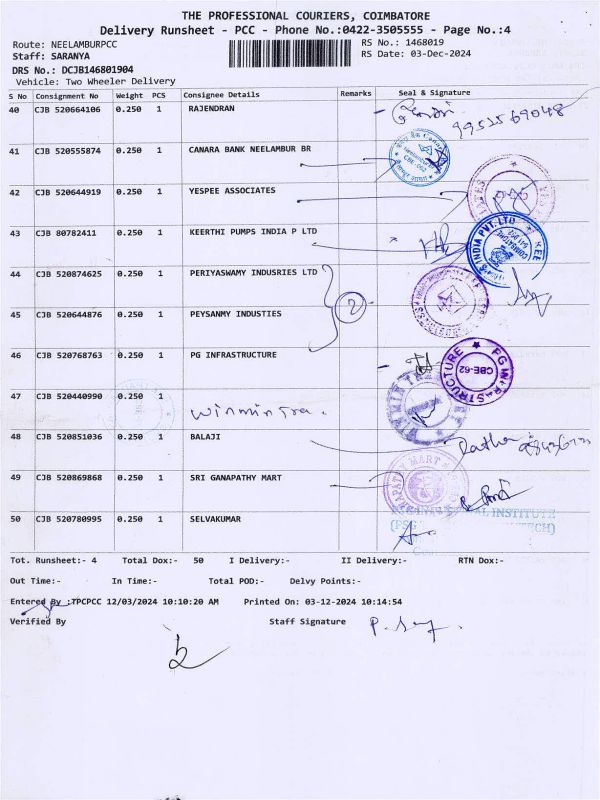 THE PROFESSIONAL COURIERS, COIMBATORE
Delivery Runsheet - PCC - Phone No.:0422-3505555 - Page No.:4
Route: NEELAMBURPCC RS No.: 1468019
Staff: SARANYA RS Date: 03-Dec-2024
DRS No.: DCJB146801904
Vehicle: Two Wheeler Delivery
S No Consignment No Weight PCS Consignee Details Remarks Seal & Signature
40 CJB 520664106 0.250 1 RAJENDRAN
9952569048
41 CJB 520555874 0.250 1 CANARA BANK NEELAMBUR BR
42 CJB 520644919 0.250 1 YESPEE ASSOCIATES
43 CJB 80782411 0.250 1 KEERTHI PUMPS INDIA P LTD
INDIA PVT. LTD
44 CJB 520874625 0.250 1 PERIYASWAMY INDUSRIES LTD
2
45 CJB 520644876 0.250 1 PEYSANMY INDUSTIES
46 CJB 520768763 0.250 1 PG INFRASTRUCTURE
PG INFRASTRUCTURE CBE-62
47 CJB 520440990 0.250 1 winmintra.
48 CJB 520851036 0.250 1 BALAJI
49 CJB 520869868 0.250 1 SRI GANAPATHY MART
50 CJB 520780995 0.250 1 SELVAKUMAR
Tot. Runsheet:- 4 Total Dox:- 50 I Delivery:- II Delivery:- RTN Dox:-
Out Time:- In Time:- Total POD:- Delvy Points:-
Entered By :TPCPCC 12/03/2024 10:10:20 AM Printed On: 03-12-2024 10:14:54
Verified By Staff Signature